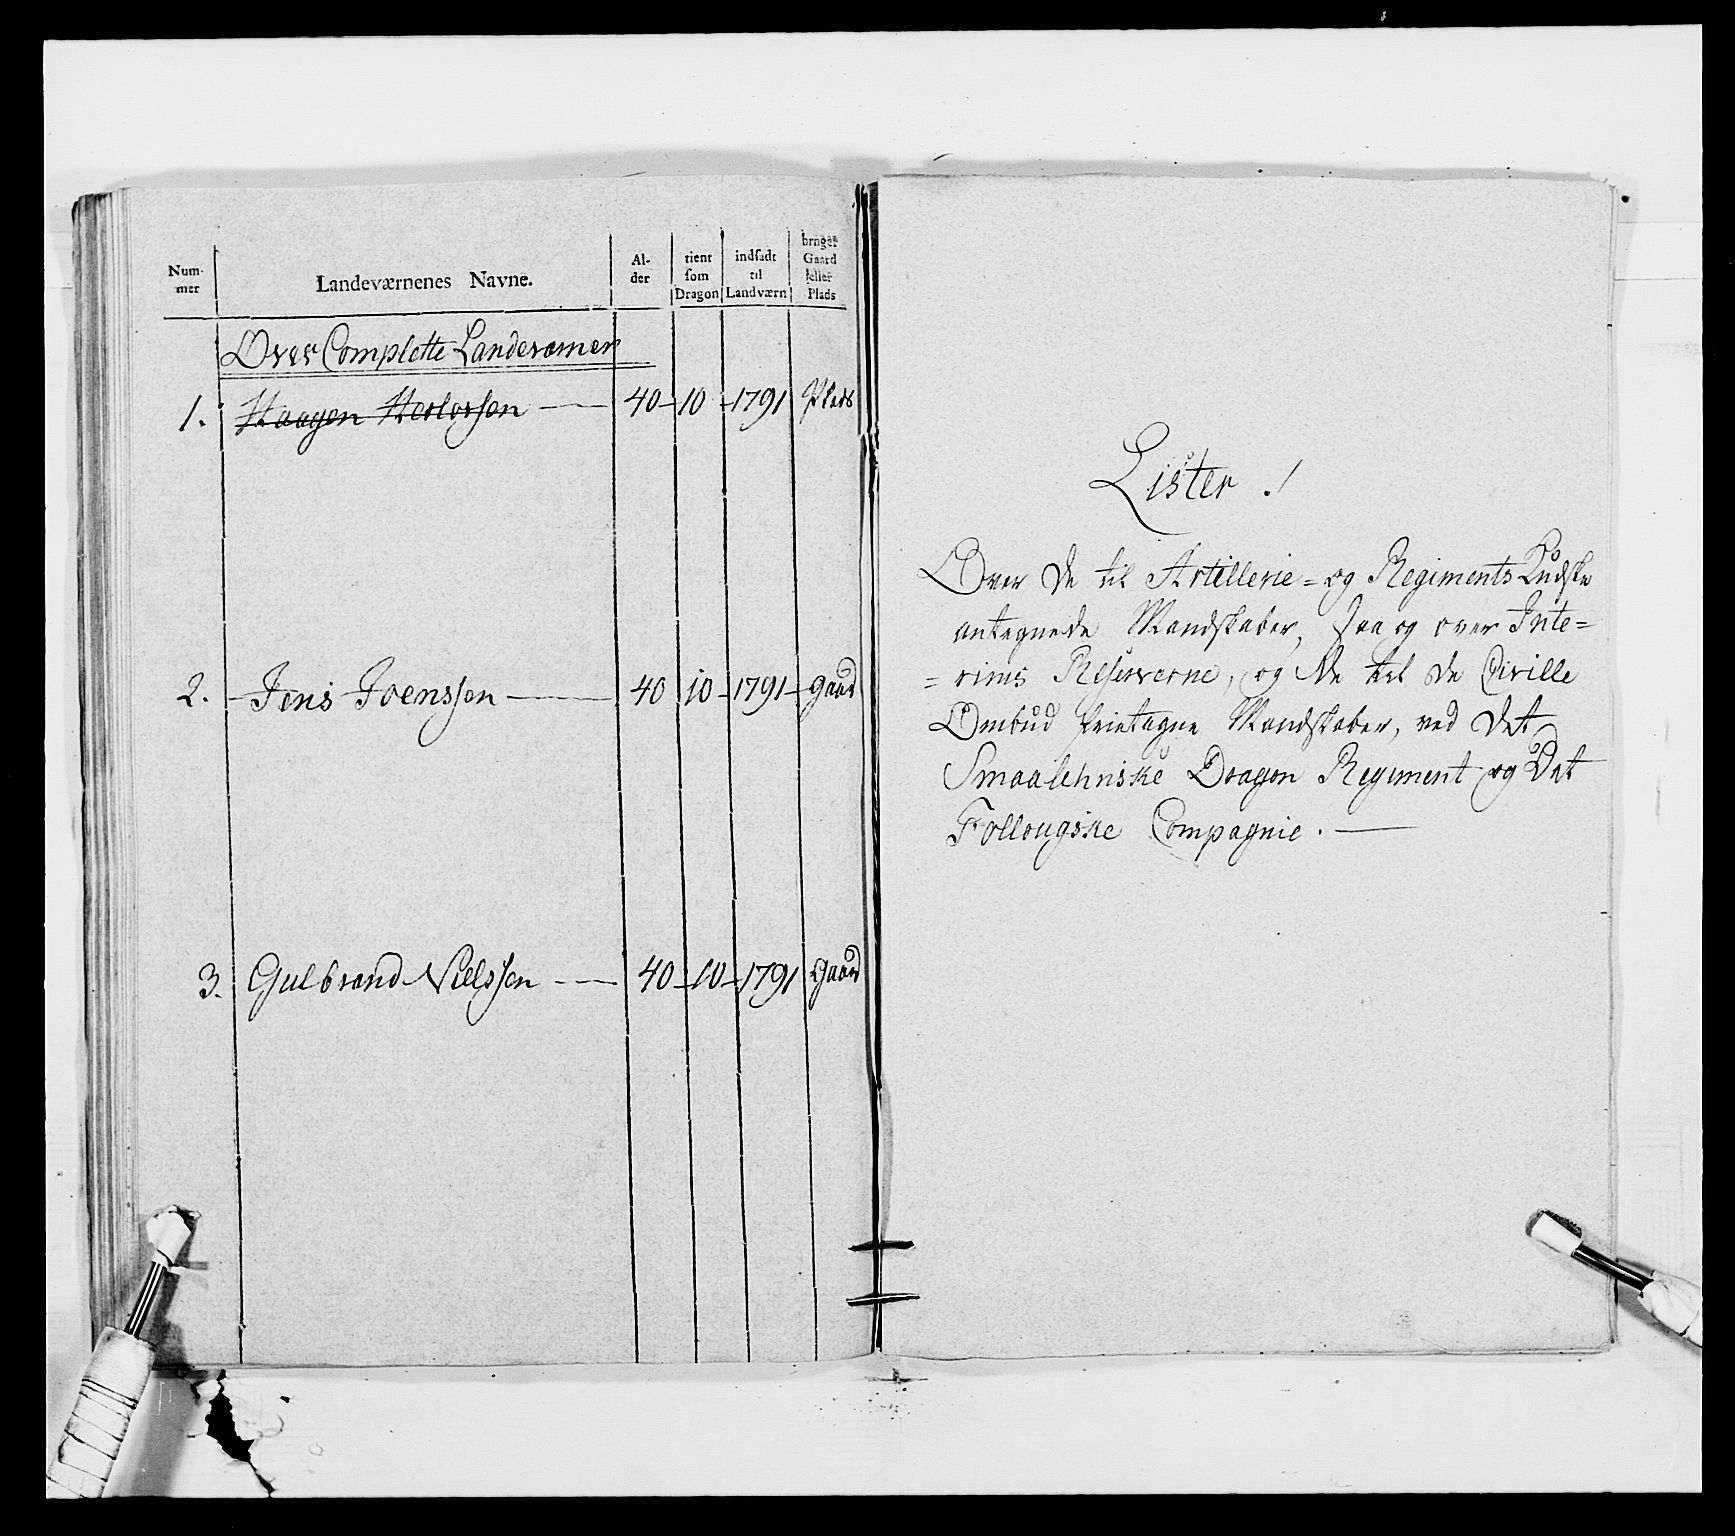 Num-mer | Landeværnenes Navne. | Al-der | tient som Dragon | indsadt til Landværn | bruger Gaard eller Plads
Over Complette Landeværner
1. Haagen Herlofsen — 40 – 10 – 1791 Plads
2. Jens Joenssen — 40 10 – 1791 – Gaard
3. Gulbrand Nielssen — 40 – 10 – 1791 Gaard
Lister ./
Over de til Artillerie = og Regiments Kudske
antegnede Mandskaber, saa og over Inte=
=rims Reserverne, og de til de Civille
Ombud frietagne Mandskaber, ved det
Smaalehniske Dragon Regiment og Det
Follougske Compagnie . —